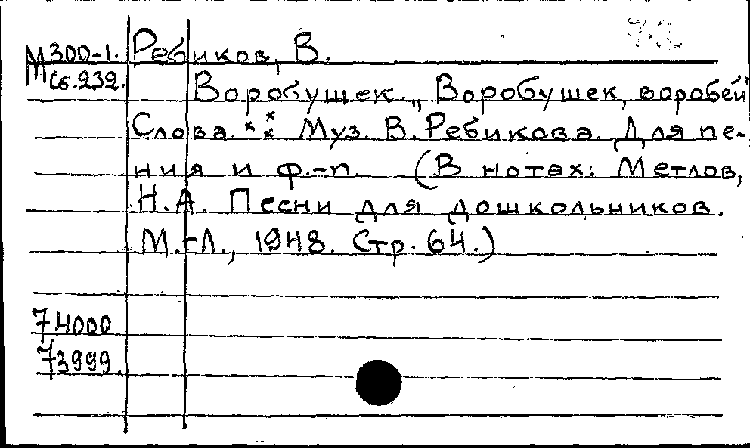 М300-1. Ребиков, В.
М сб.232. Воробушек. „Воробушек, воробей"
Слова *** Муз. В. Ребикова. Для пе-
ния и ф.-п. (В нотах: Метлов,
Н.А. Песни для дошкольников.
М.-Л., 1948. Стр. 64.)
74000
73999.